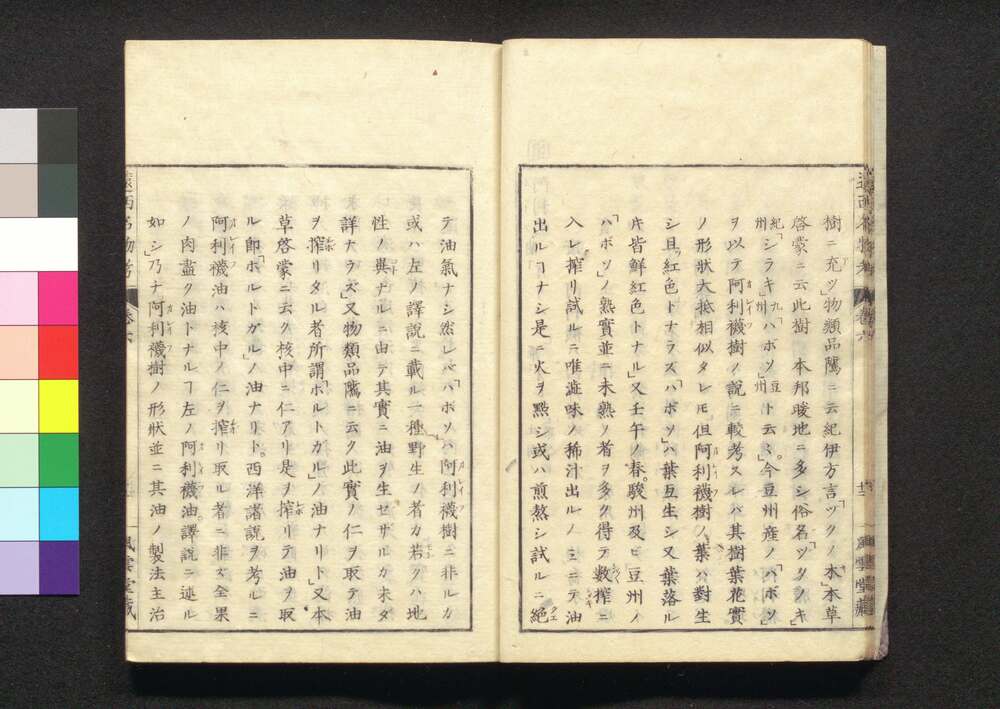 樹ニ充ツ」物類品隲ニ云紀伊方言「ツクノ木」本草
啓蒙ニ云此樹 本邦暖地ニ多シ俗名「ヅクノキ」
紀州「シラキ」九州「ハボソ」豆州ト云々今豆州産ノ「ハボソ」
ヲ以テ阿利襪樹ノ説ニ較考スレバ其樹葉花實
ノ形狀大抵相似タレモ但阿利襪樹ノ葉ハ對生
シ且紅色トナラズ「ハボソ」ハ葉互生シ又葉落ル
片皆鮮紅色トナル」又壬午ノ春駿州及ビ豆州ノ
「ハボソ」ノ熟實並ニ未熟ノ者ヲ多ク得テ數搾ニ
入レ搾リ試ルニ唯澁味ノ稀汁出ルノミニテ油
出ルヿナシ是ニ火ヲ點シ或ハ煎熬シ試ルニ絶
テ油氣ナシ然レバ「ハボソ」ハ阿利襪樹ニ非ルカ
或ハ左ノ譯説ニ載ル一種野生ノ者カ若クハ地
性ノ異ナルニ由テ其實ニ油ヲ生セザルカ未ダ
詳ナラズ」又物類品隲ニ云ク此實ノ仁ヲ取テ油
ヲ搾リタル者所謂「ホルトガル」ノ油ナリト」又本
草啓蒙ニ云ク核中ニ仁アリ是ヲ搾リテ油ヲ取
ル即「ホルトガル」ノ油ナリト西洋諸説ヲ考ルニ
阿利襪油ハ核中ノ仁ヲ搾リ取ル者ニ非ズ全果
ノ肉盡ク油トナルヿ左ノ阿利襪油譯説ニ述ル
如シ」乃ナ阿利襪樹ノ形狀並ニ其油ノ製法主治